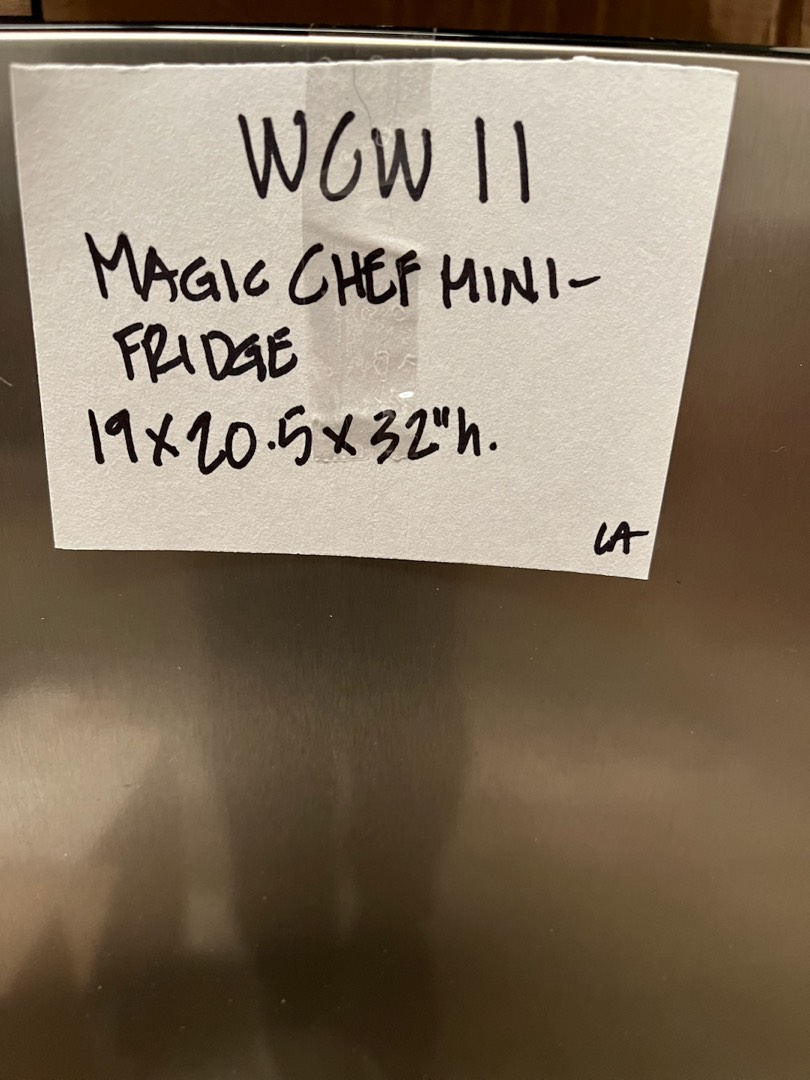 WCW 11
MAGIC CHEF MINI-
FRIDGE
19X20.5X32"h.
LA